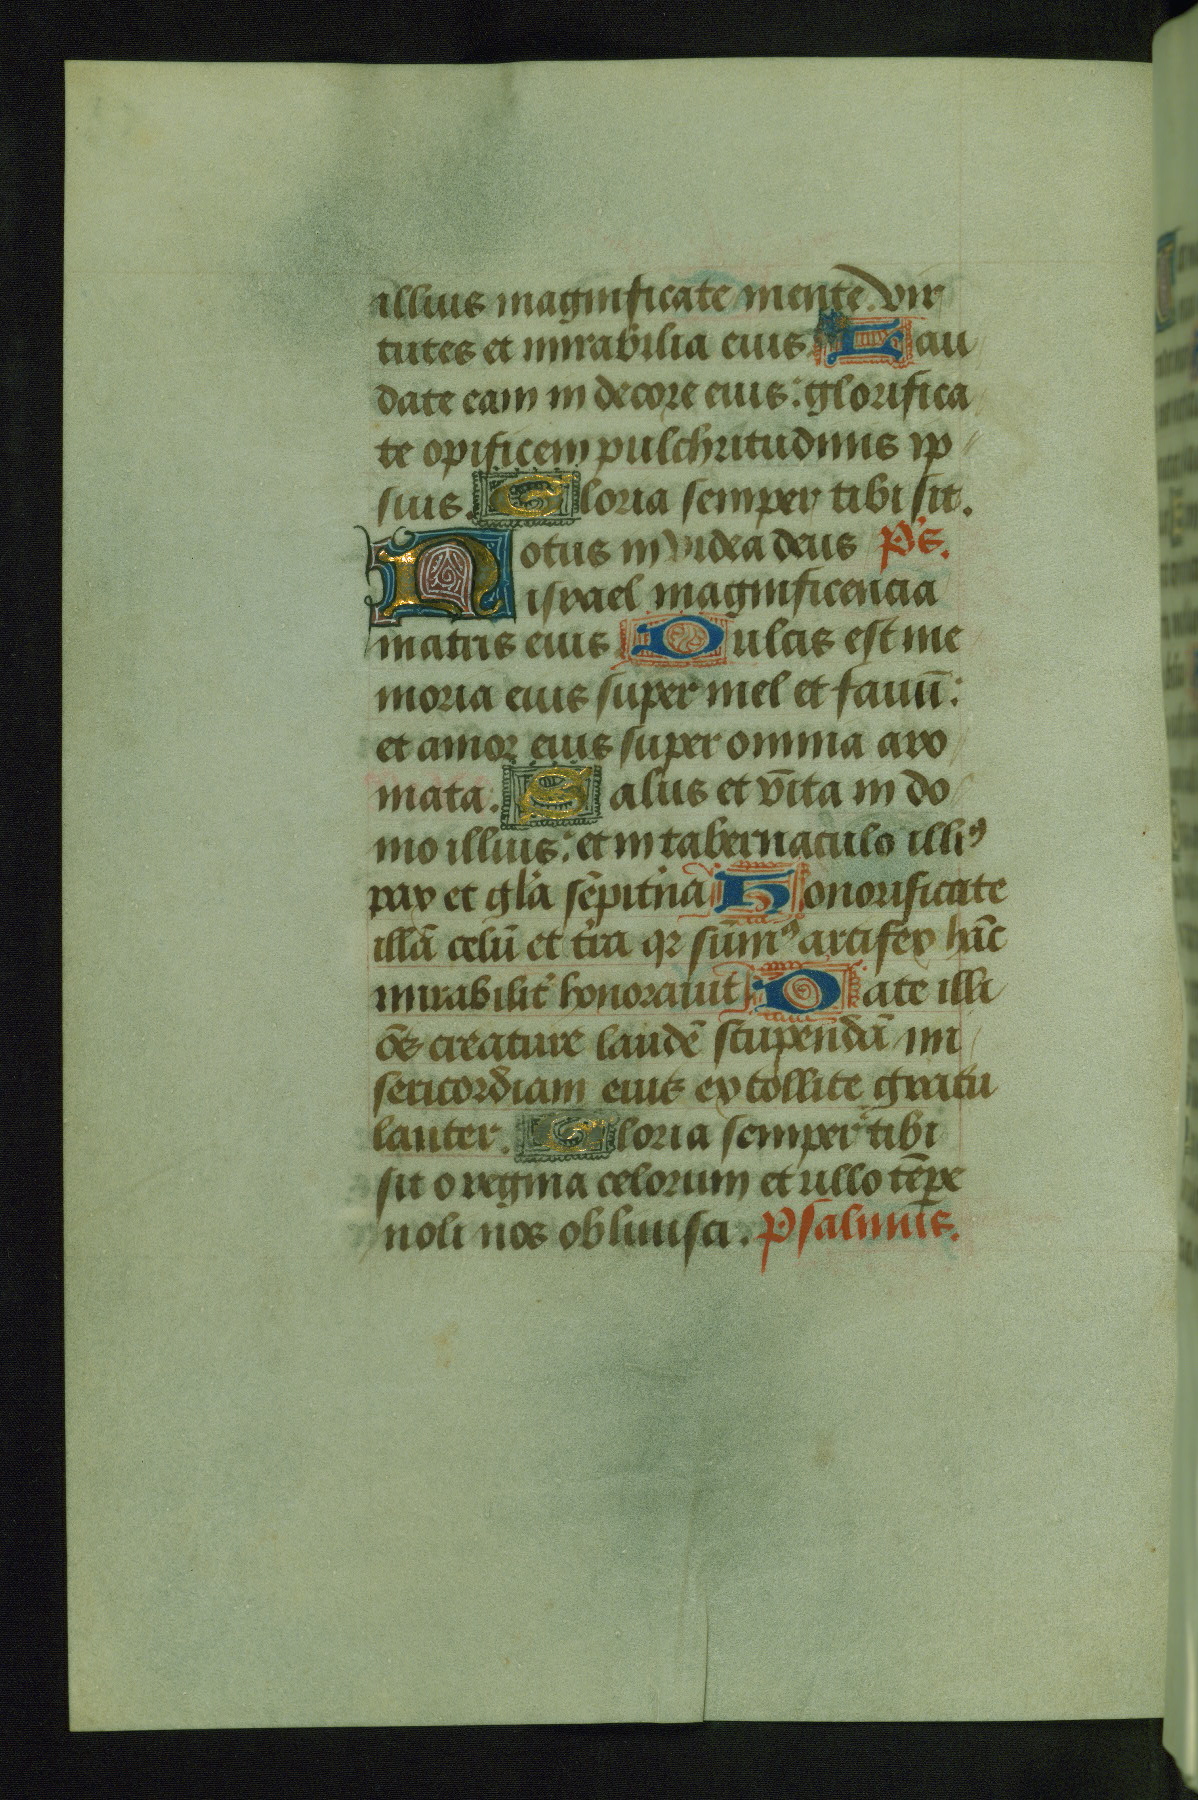 illius magnificate mente. vir
tutes et mirabilia eius Lau
date eam in decore eius: glorifica
te opificem pulchritudinis ip
sius. Gloria semper tibi sit.
Notus in videa deus Ps.
israel magnificencia
matris eius Dulcis est me
moria eius super mel et fauū:
et amor eius super omnia aro
mata. Salus et vīta in do
mo illius: et in tabernaculo illiꝰ
pax et gl'a sēpit'na Honorificate
illā celū et t'ra qꝛ sūmꝰ artifex hāc
mirabilit' honorauit Date illi
ōēs creature laudē stupendā mi
sericordiam eius extollite gratu
lanter. Gloria semper tibi
sit o regina celorum et ullo tēpe
noli nos obliuisci. Psalmus.